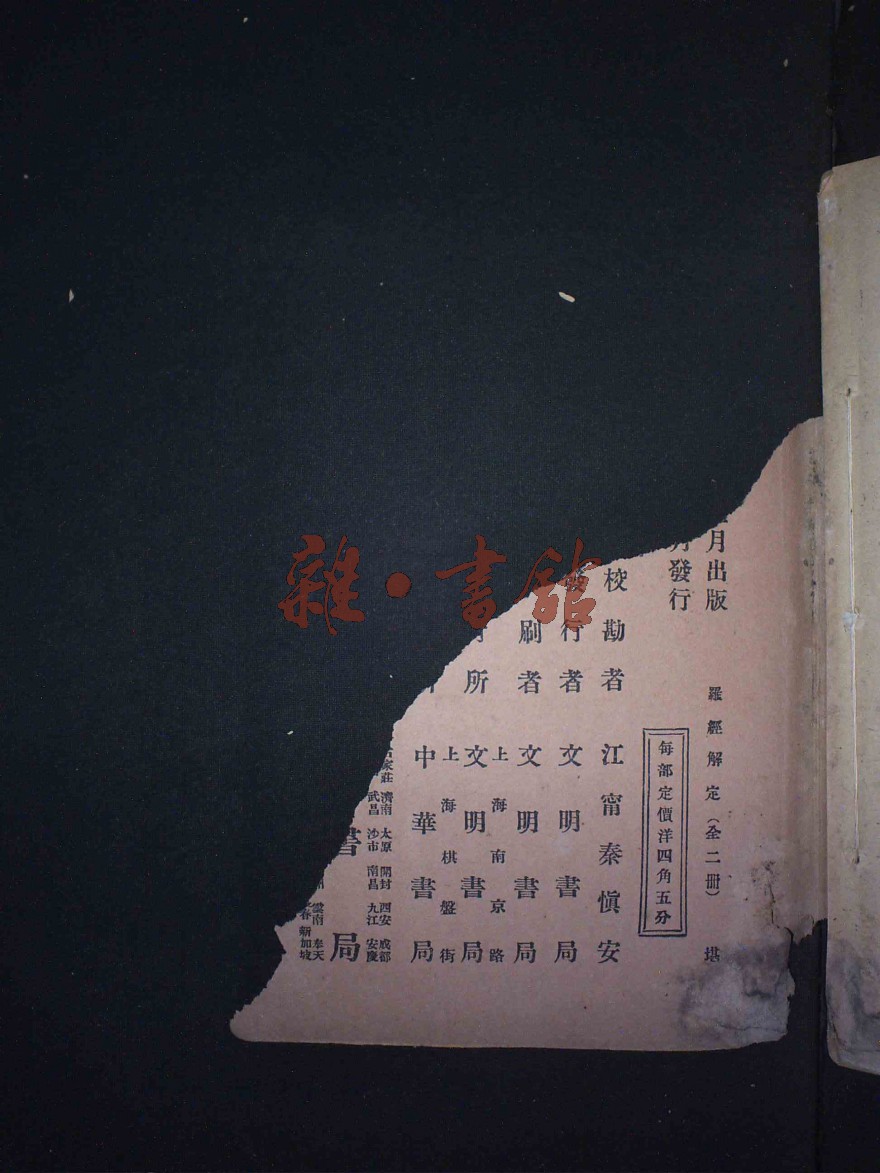 月出版
月發行
羅經解定(全二冊) 堪
每部定價洋四角五分
校勘者 江甯秦愼安
發行者 文明書局
刷者 文明書局
上海南京路
所 文明書局
上海棋盤街
中華書局
家莊 濟南 太原 開封 西安 成都
武昌 沙市 南昌 九江 安慶
書局
雲南 奉天
春 新加坡
雜·書館